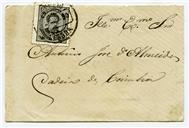 Ill.mo Ex.mo Snr
Antonio José d'Almeida
Cadeia de Coimbra